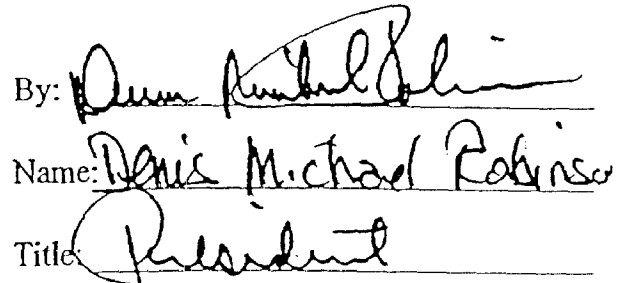 By: Denis Michael Robinson
Name: Denis Michael Robinson
Title: President